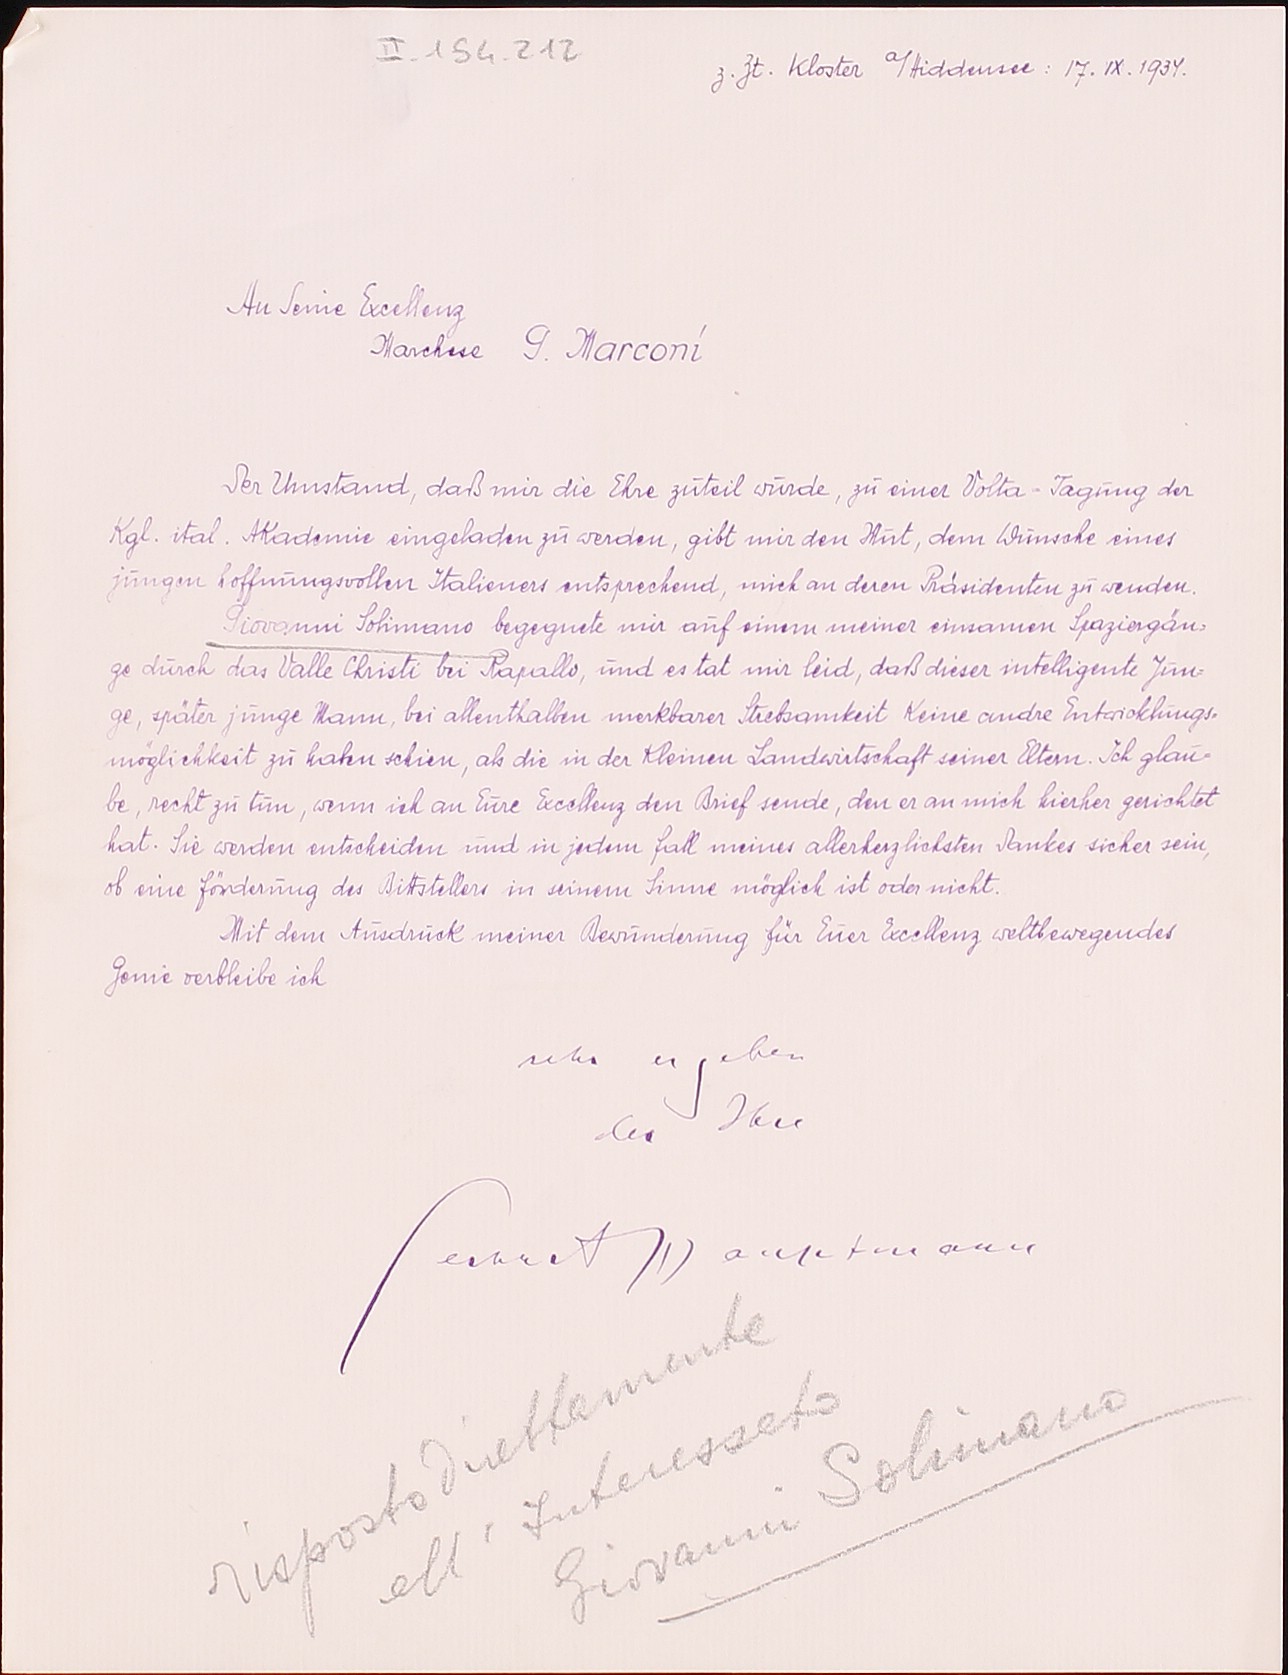 II.154.212
z. Zt. Kloster a/Hiddensee: 17. IX. 1934.
An Seine Excellenz
Marchese G. Marconi
Der Umstand, daß mir die Ehre zuteil wurde, zu einer Volta-Tagung der
Kgl. ital. Akademie eingeladen zu werden, gibt mir den Mut, dem Wunsche eines
jungen hoffnungsvollen Italieners entsprechend, mich an deren Präsidenten zu wenden.
Giovanni Solimano begegnete mir auf einem meiner einsamen Spaziergän=
ge durch das Valle Christi bei Rapallo, und es tat mir leid, daß dieser intelligente Jun=
ge, später junge Mann, bei allenthalben merkbarer Strebsamkeit keine andre Entwicklungs=
möglichkeit zu haben schien, als die in der kleinen Landwirtschaft seiner Eltern. Ich glau=
be, recht zu tun, wenn ich an Eure Excellenz den Brief sende, den er an mich hierher gerichtet
hat. Sie werden entscheiden und in jedem Fall meines allerherzlichsten Dankes sicher sein,
ob eine Förderung des Bittstellers in seinem Sinne möglich ist oder nicht.
Mit dem Ausdruck meiner Bewunderung für Euer Excellenz weltbewegendes
Genie verbleibe ich
sehr ergeben
der Ihre
Gerhart Hauptmann
risposto direttamente
all' Interessato
Giovanni Solimano